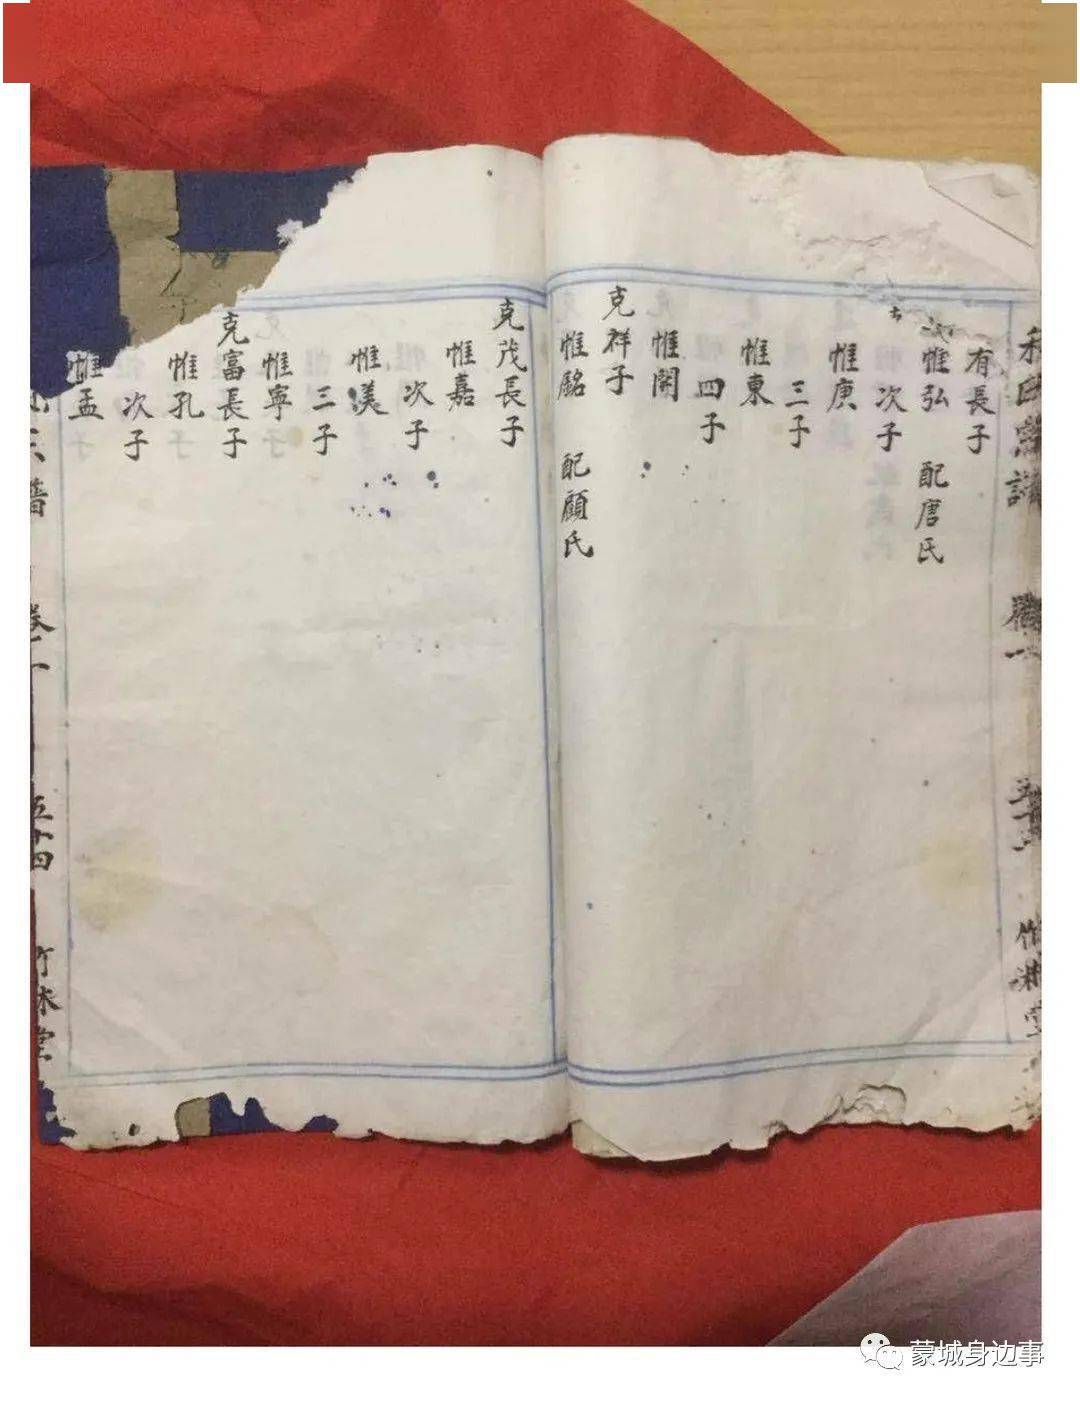 有長子
惟弘 配唐氏
次子
惟庚
三子
惟東
四子
惟開
克祥子
惟銘 配顧氏
克茂長子
惟嘉
次子
惟美
三子
惟寧
克富長子
惟孔
次子
惟孟
卷一 五十四 竹林堂
蒙城身边事